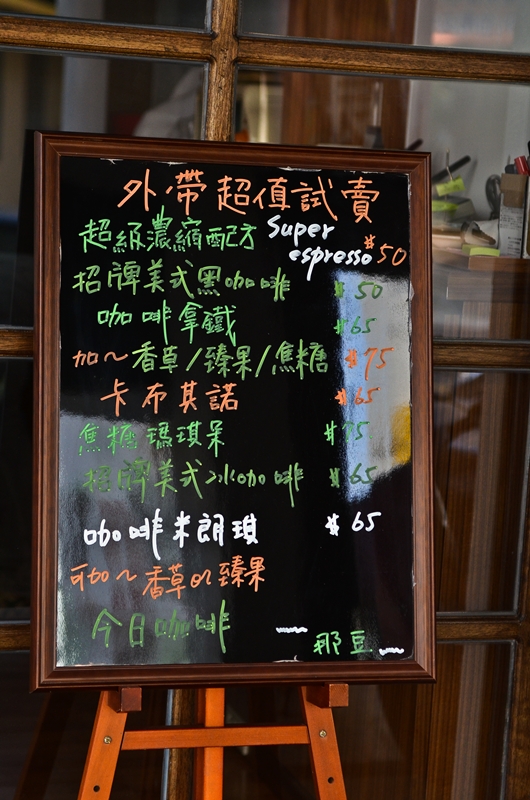 外帶超值試賣
超級濃縮配方 Super
espresso $50
招牌美式黑咖啡 $50
咖啡拿鐵 $65
加~香草/臻果/焦糖 $75
卡布其諾 $65
焦糖瑪琪朵 $75
招牌美式冰咖啡 $65
咖啡米朗琪 $65
可加~香草or臻果
今日咖啡
那豆